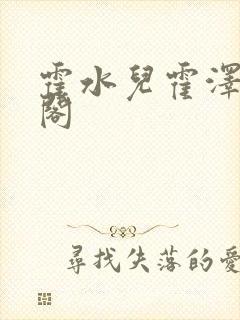 霍水兒霍澤
閣
尋找失落的愛